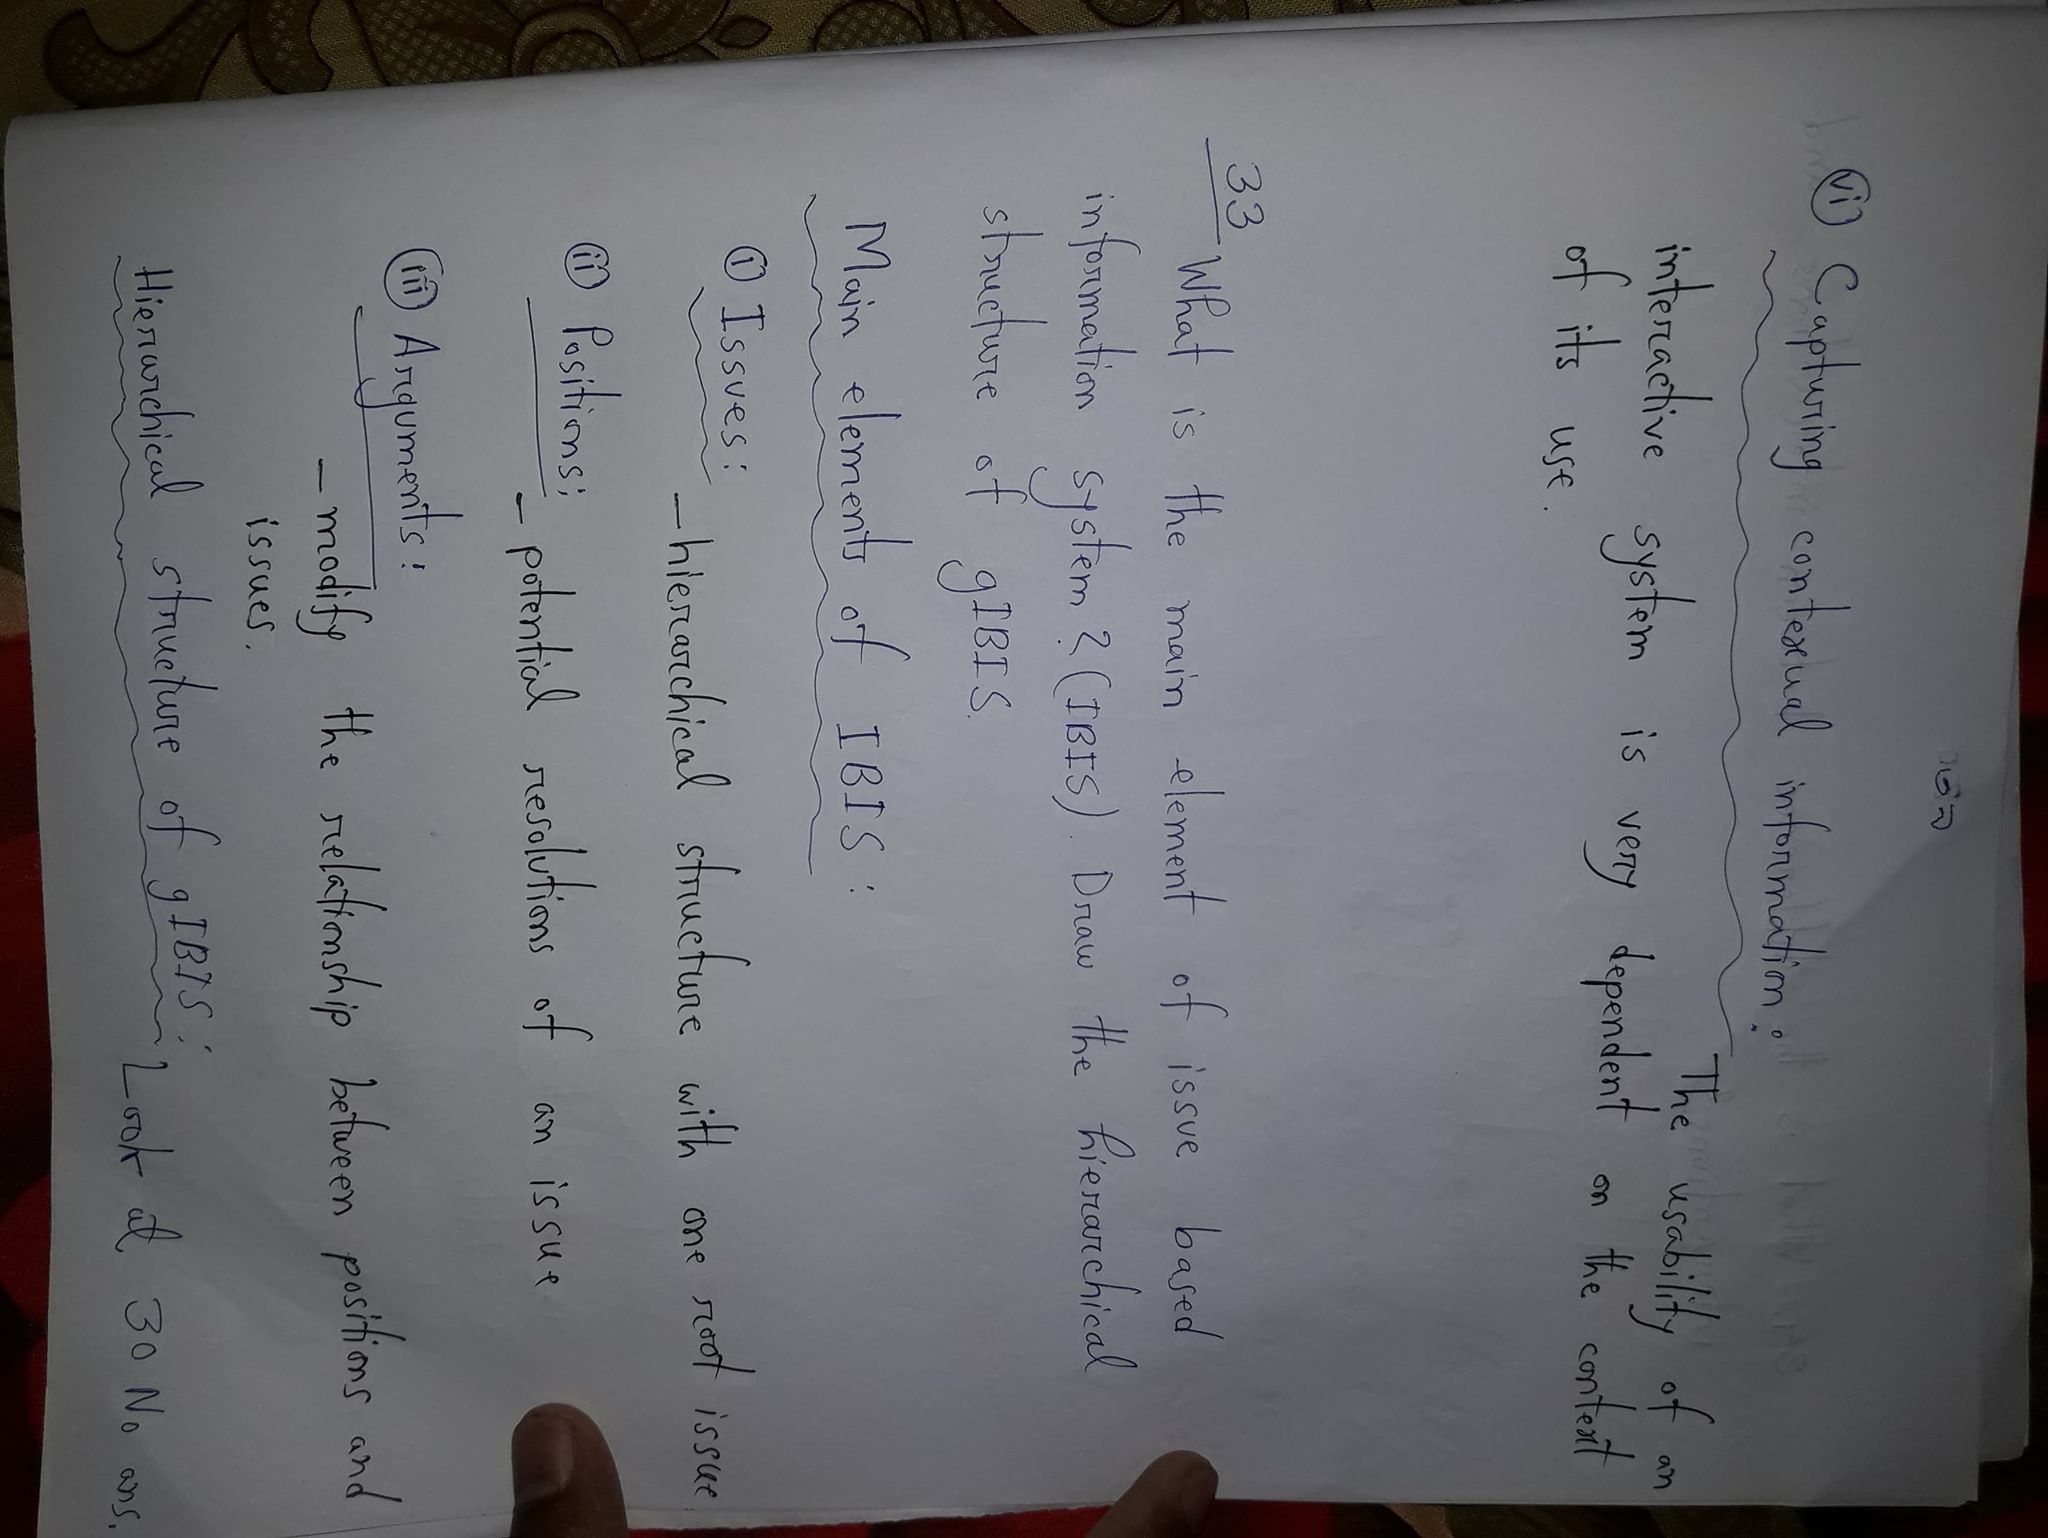 vi Capturing contexual information:
The usability of an
interactive system is very dependent on the context
of its use.
33
What is the main element of issue based
information system? (IBIS). Draw the hierarchical
structure of gIBIS.
Main elements of IBIS:
i Issues:
- hierarchical structure with one root issue
ii Positions:
- potential resolutions of an issue
iii Arguments:
- modify the relationship between positions and
issues.
Hierarchical structure of gIBIS:
Look at 30 No ans.